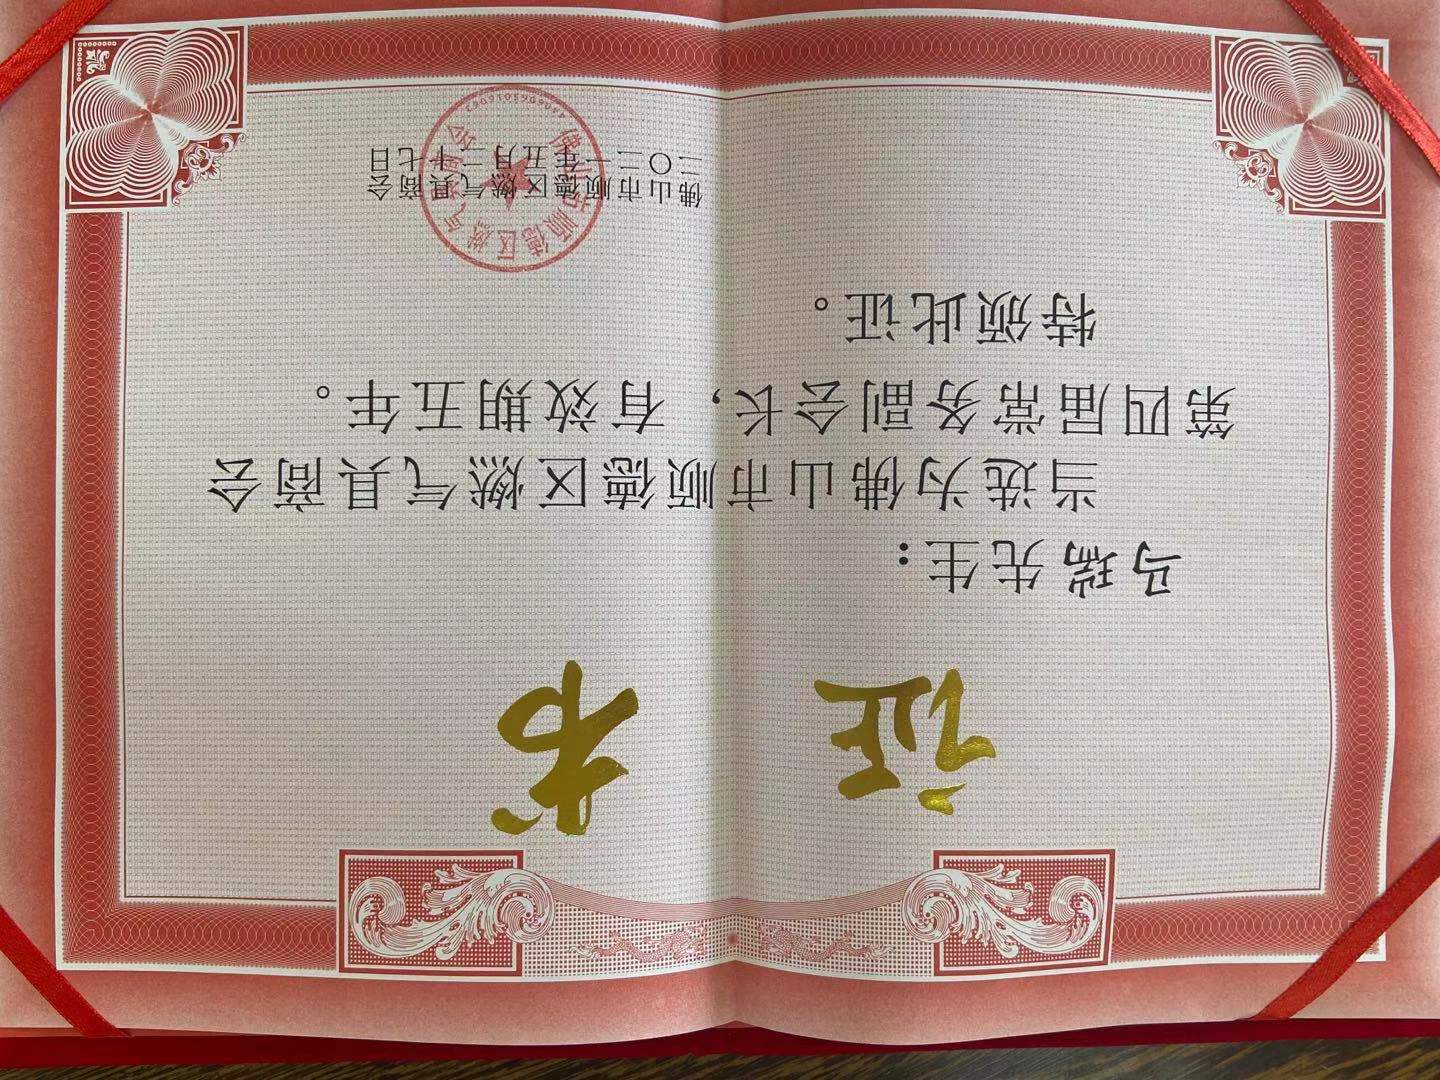 证书
马瑞先生：
当选为佛山市顺德区燃气具商会
第四届常务副会长，有效期五年。
特颁此证。
佛山市顺德区燃气具商会
二〇二一年五月二十七日
佛山市顺德区燃气具商会